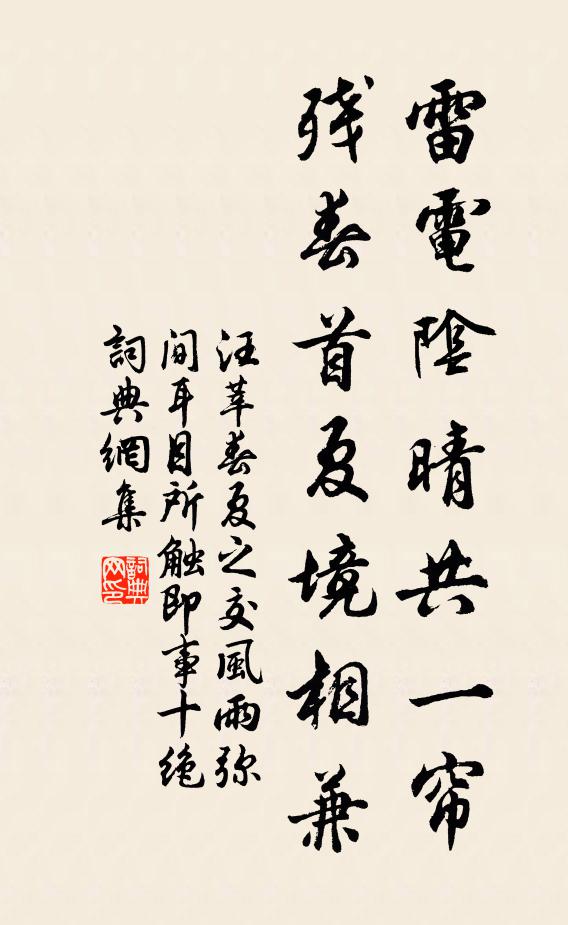 雷電陰晴共一帘
残春首夏境相兼
汪莘春夏之交風雨弥
間耳目所触即事十绝
詞典網集
詞典网印